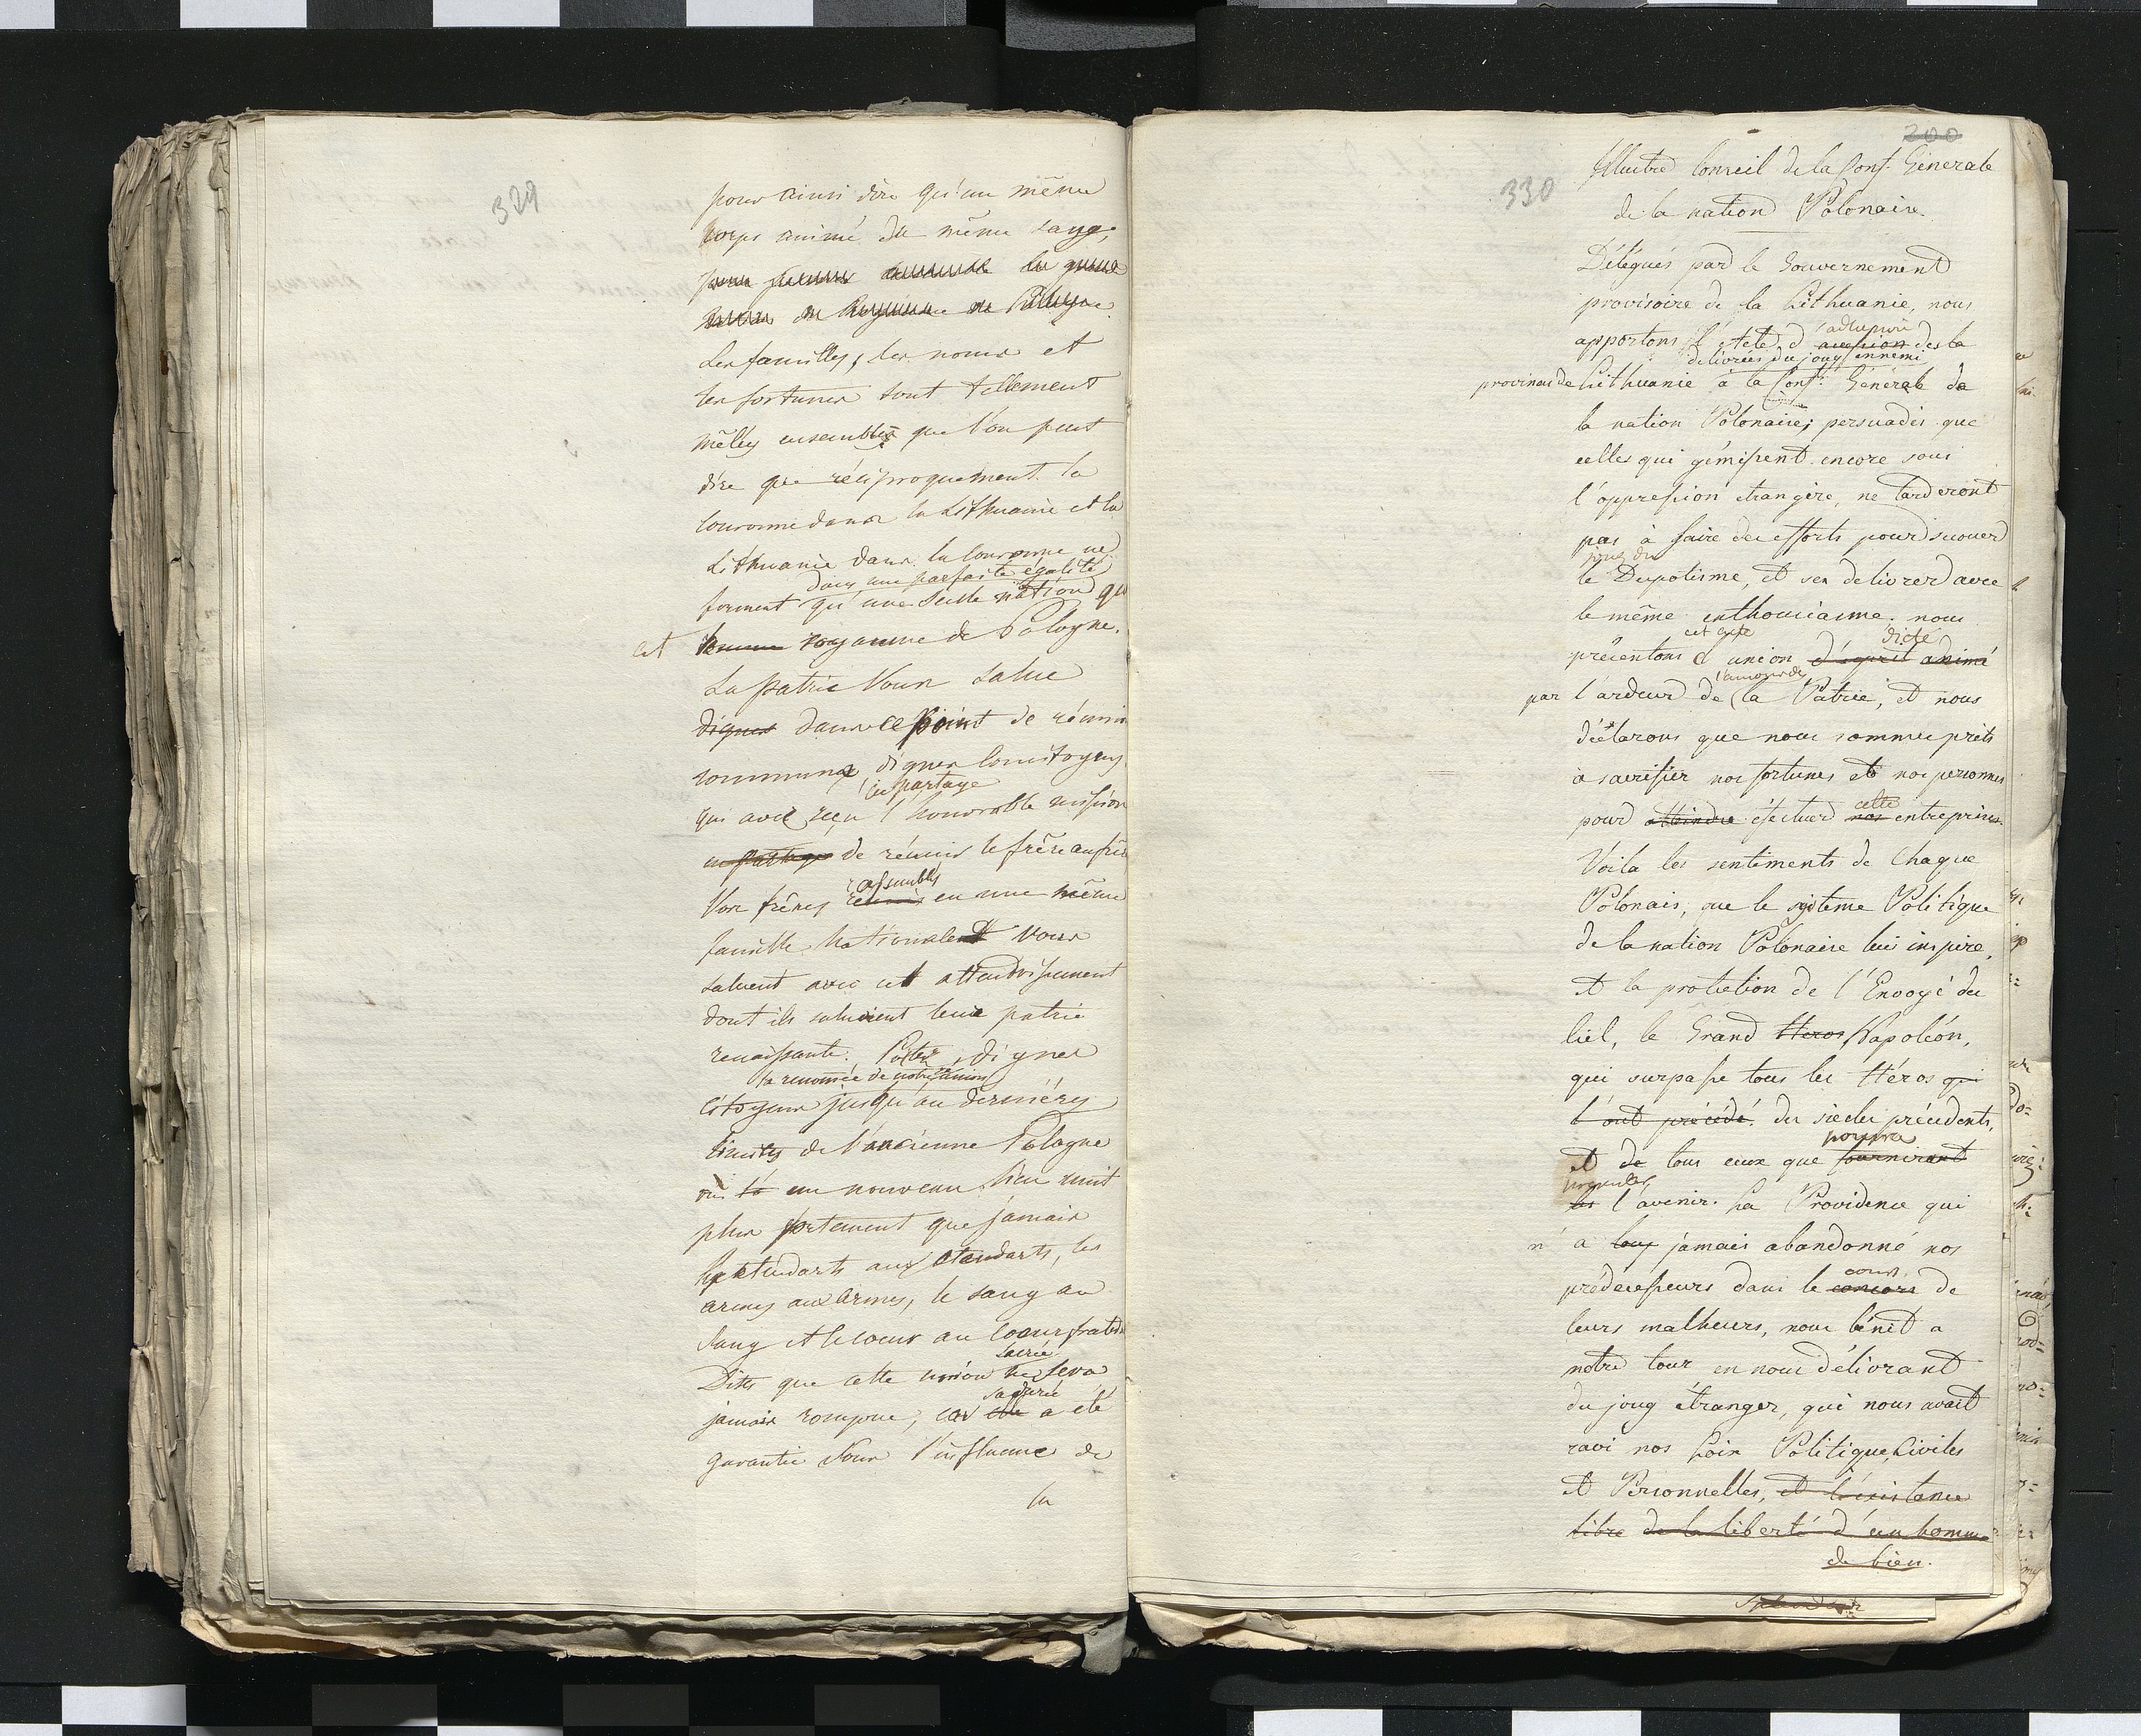 329
pour ainsi dire qu'un même
corps animé du même sang,
Les familles, les noms et
les fortunes sont tellement
mêlés ensembles que l'on peut
dire que réciproquement la
Couronne dans la Lithuanie et la
Lithuanie dans la Couronne ne
dans une parfaite égalité
forment qu'une seule nation qu
et royaume de Pologne.
La patrie Vous salue
dignes dans ce point de réunion
commune, dignes Concitoyens
en partage
qui avez reçu l'honorable mission
en partage de réunir le frère au frère
rassemblés
Vos frères réunis en une même
famille Nationale Vous
saluent avec cet attendrissement
dont ils saluaient leur patrie
renaissante. Portez, dignes
la renomée de notre union
citoyens jusqu'au dernières
limites de l'ancienne Pologne
où un nouveau lien unit
plus fortement que jamais
les étendarts aux étendarts, les
armes aux armes, le sang au
sang et le coeur au coeur
sacrée
Dites que cette union ne sera
jamais rompue, car elle a été
garantie sous l'influence de
la
200
330
Illustre Conseil de la Conf. Génerale
de la nation Polonaise
Délégués par le Gouvernement
provisoire de la Lithuanie, nous
apportons l'acte d' accession des la
delivrées du joug ennemi
provinces de Lithuanie à la Conf. Générale de
la nation Polonaise; persuadés que
celles qui gémissent encore sous
l'oppression etrangère, ne tarderont
pas à faire des efforts pour secouer
joug du
le Despotisme, et s'en delivrer avec
le même enthousiasme. nous
cet acte dicté
présentons d'union d'esprit animé
l'amour de
par l'ardeur de la Patrie, et nous
déclarons que nous sommes prêts
à sacrifier nos fortunes et nos personnes
cette
pour atteindre éfectuer nos entreprises.
Voila les sentiments de Chaque
Polonais, que le sisteme Politique
de la nation Polonaise lui inspire,
et la protection de l'Envoyé du
Ciel, le Grand Heros Napoléon,
qui surpasse tous les Héros qui
l'ont précédé. des siècles précedents,
pourra
et de tous ceux que fourniront
les l'avenir. La Providence qui
n' a tous jamais abandonné nos
cours
prédecesseurs dans le concours de
leurs malheurs, nous bénit a
notre tour en nous délivrant
du joug étranger, qui nous avait
ravi nos Loix Politiques, Civiles
et Personnelles, et l'existence
libre de la liberté d'un homme
de bien.